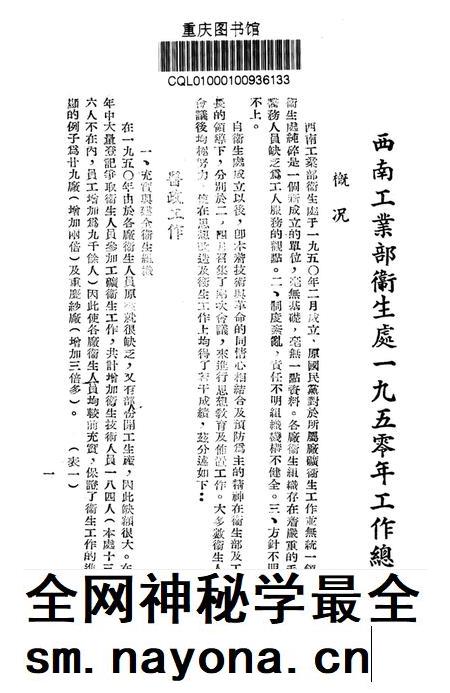 重庆图书馆
CQL01000100936133
西南工業部衞生處一九五零年工作總
概况
西南工業部衞生處于一九五〇年二月成立，原國民黨對於所屬廠礦衞生工作並無統一領
衞生處純碎是一個新成立的單位，毫無基礎，毫無一點資料。各廠衞生組織存在着嚴重的
業務人員缺乏爲工人服務的觀點。二、制度紊亂，責任不明組織機構不健全。三、方針不明
不上。
自衞生處成立以後，卽本着技術與革命的同情心相結合及預防爲主的精神在衞生部及工
長的領導下，分別於二、四月召集了兩次會議，來進行思想敎育及佈置工作。大多數衞生人
會議後均極努力，在思想改造及衞生工作上均得了若干成績，茲分述如下：
醫政工作
一、充實與建全衞生組織
在一九五〇年由於各廠衞生人員原來就很缺乏，又有部份開工生產，因此缺額很大。在
年中大量登記爭取衞生人員參加工礦衞生工作，共計增加衞生技術人員一八四人（本處十三
六人不在內，員工增加爲九千餘人）因此使各廠衞生人員均較前充實，保證了衞生工作的進
顯的例子爲廿九廠（增加兩倍）及重慶紗廠（增加三倍多）。（表一）
一
全网神秘学最全
sm.nayona.cn